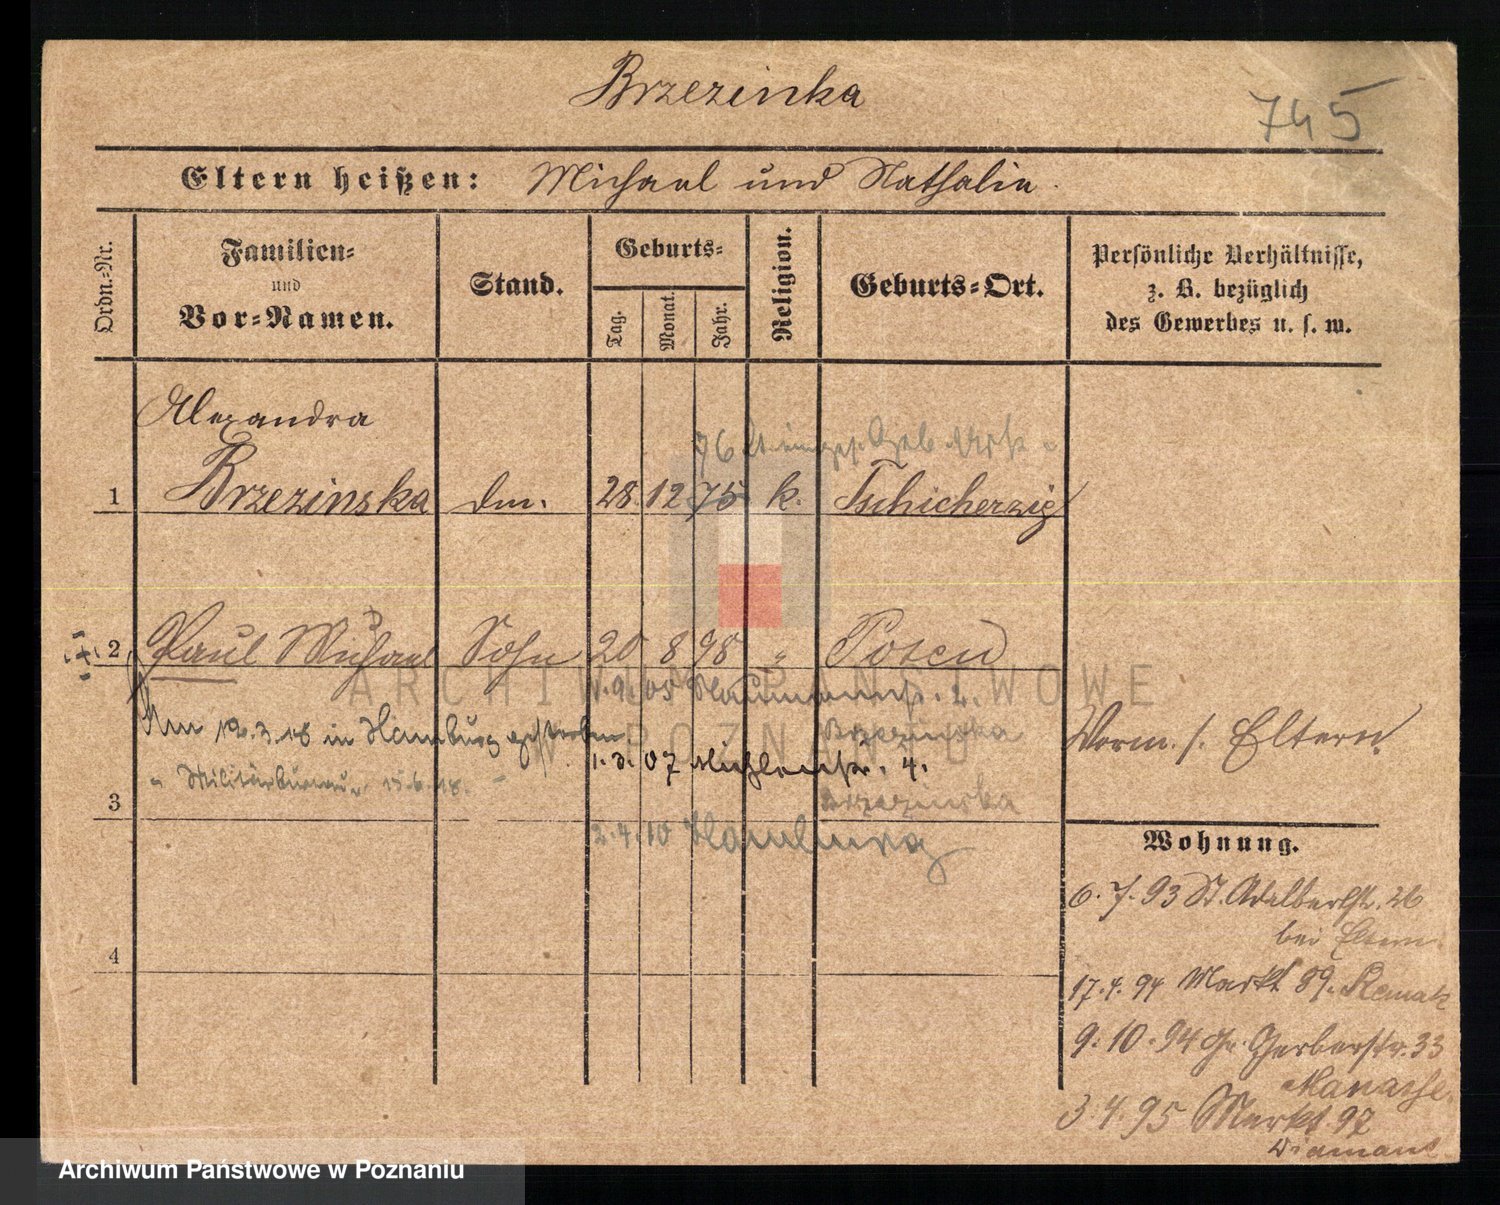 Brzezinka
745
Eltern heißen: Michael und Nathalie.
Ordn.=Nr.
Familien=
und
Vor=Namen.
Stand.
Geburts=
Tag.
Monat.
Jahr.
Religion.
Geburts=Ort.
Persönliche Verhältnisse,
z. B. bezüglich
des Gewerbes u. s. w.
Alexandra
76
1 Brzezinska 28. 12 75 k. Tschicherzig
2 Paul Michael Sohn 20 8 98 " Posen
ARCHIWUM PAŃSTWOWE
W POZNANIU
05
Brzezinska
Am in Hamburg gestorben
1. 3. 07 4.
" Militärbureau 15.6.18.
3
Brzezinska
2.4.10 Hamburg
Vorm. s. Eltern.
Wohnung.
6. 7. 93 St. Adalbertstr. 26
bei Eltern
4
17. 4. 94 Markt 89. Remak
9. 10. 94 Gr. Gerberstr. 33
Manasse.
3. 4. 95 Markt 92
Diamant
Archiwum Państwowe w Poznaniu